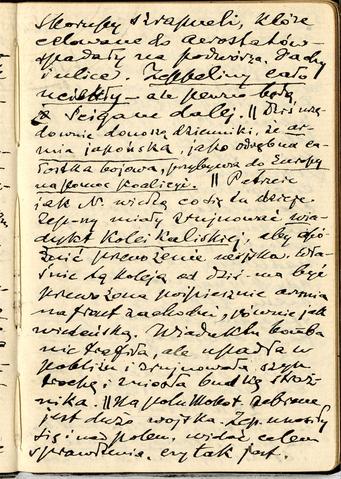 Skorupy szrapneli, które
celowane do aerostatów -
spadały na podwórza, dachy
i ulice. Zeppeliny cało
uciekły - ale pewno będą
Ścigane dalej. || Dziś urzę-
downie donoszą dzienniki, że ar-
mia japońska, jako odrębna ca-
łostka bojowa, przybywa do Europy
na pomoc koalicyi. ||
jak N. widzą co się tu dzieje.
Zep-ny miały zrujnować wia-
dykt Kolei Kaliskiej, aby opó-
źnić przewożenie wojska. Wła-
śnie tą koleją od dziś - ma być
przewożona pośpiesznie armia
na front zachodni, również jak
wiedeńską. Wiaduktu bomba
nie trafiła, ale upadła w
pobliżu i zrujnowała szyn
trochę i zniosła budkę stróż-
nika. || Na polu Mokot. zebrane
jest dużo wojska. Zep. unosiły
się i nad polem, widać celem
sprawdzenia, czy tak jest.